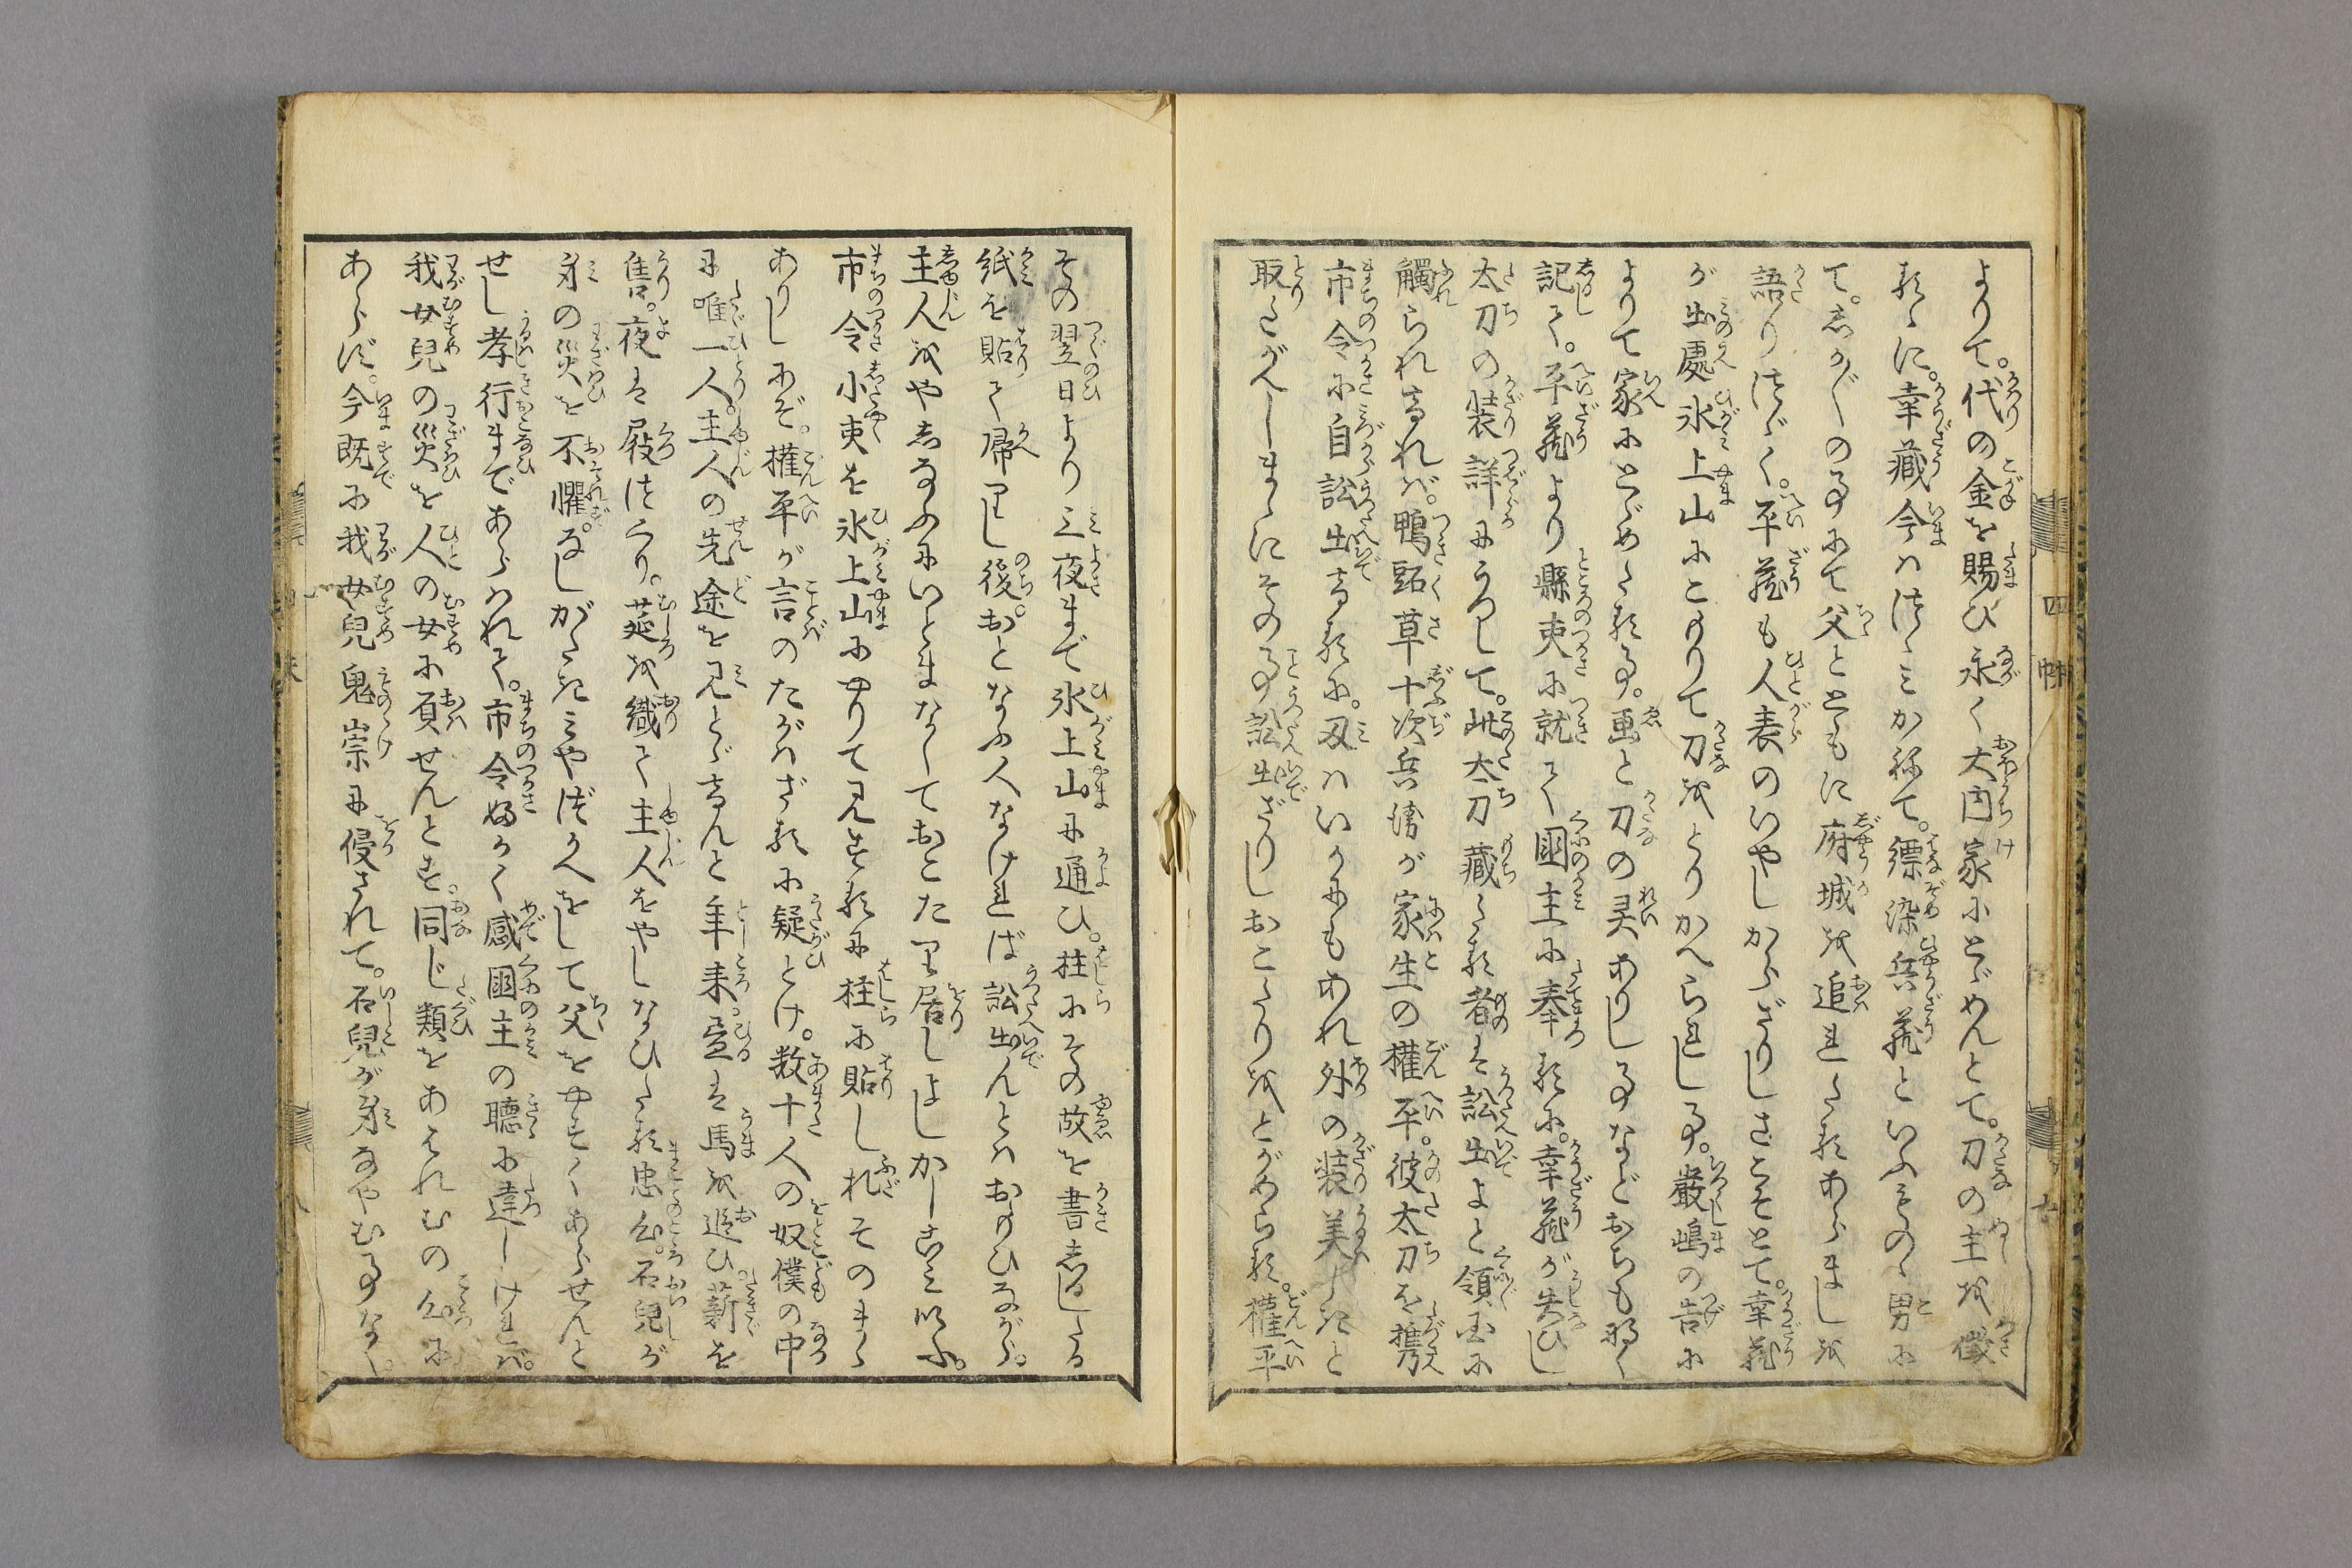 よりて。代の金を賜ひ永く大内家にとゞめんとて。刀の主を徴
るゝに。幸藏今はつゝみかねて。縹染兵藏といふものゝ男に
て。しか〴〵の事にて父とともに府城を追れたるあらましを
語りつゞく。平藏も人表のいやしからざりしさこそとて。幸藏
が出處氷上山にこもりて刀をとりかへられし事。嚴嶋の告に
よりて家にとゞめたる事。画と刀の灵ありし事などおちもなく
記て。平藏より縣吏に就て國主に奉るに。幸藏が失ひし
太刀の装詳にうつして。此太刀藏たる者は訟出よと領国に
觸られければ。鴨跖草十次兵衛が家生の權平。彼太刀を携
市令に自訟出けるに。刄はいかにもあれ外の装美しきと
取たがへしまゝにその事訟出ざりしおこたりをとがめらる。權平
その翌日より三夜まで氷上山に通ひ。柱にその故を書しるしたる
紙を貼て帰りし後。おとなふ人なければ訟出んとはおもひながら。
主人をやしなふにいとまなくておこたり居しよしかしこみいふ。
市令小吏を氷上山にやりて見するに柱に貼し札そのまゝ
ありしにぞ。權平が言のたがはざるに疑とけ。数十人の奴僕の中
に唯一人。主人の先途を見とゞけんと年来。昼は馬を追ひ。薪を
售。夜は屐つくり。莚を織て主人をやしなひたる忠心。石兒が
身の災を不懼。なしがたきみやづかへをして父をやすくあらせんと
せし孝行まであらはれて。市令ふかく感國主の聴に達しければ。
我女兒の災を人の女に負せんとす。同じ類をあはれむの心に
あらず。今既に我女兒鬼崇に侵されて。石兒が身なやむ事なく。